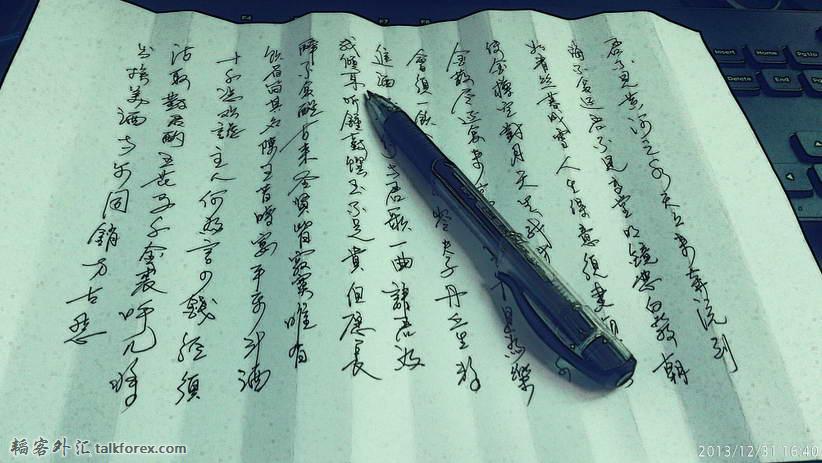 君不见黄河之水天上来奔流到
海不复还君不见高堂明镜悲白发朝
如青丝暮成雪人生得意须尽
使金樽空对月天生我材
金散尽还复来 且为乐
会须一饮 岑夫子丹丘生将
进酒 与君歌一曲请君为
我倾耳听钟鼓馔玉不足贵但愿长
醉不愿醒古来圣贤皆寂寞唯有
饮者留其名陈王昔时宴平乐斗酒
十千恣欢谑主人何为言少钱径须
沽取对君酌五花马千金裘呼儿将
出换美酒与尔同销万古愁
F4
F7
F8
Insert
Home
PgUp
Delete
End
PgDn
韬客外汇 talkforex.com
2013/12/31 16:40